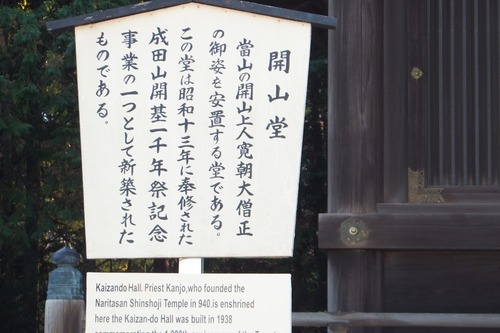 開山堂
當山の開山上人寛朝大僧正
の御姿を安置する堂である。
この堂は昭和十三年に奉修された
成田山開基一千年祭記念
事業の一つとして新築された
ものである。
Kaizando Hall. Priest Kanjo,who founded the
Naritasan Shinshoji Temple in 940.is enshrined
here the Kaizan-do Hall was built in 1938
commemorating the 1,000th anniversary of the Temple